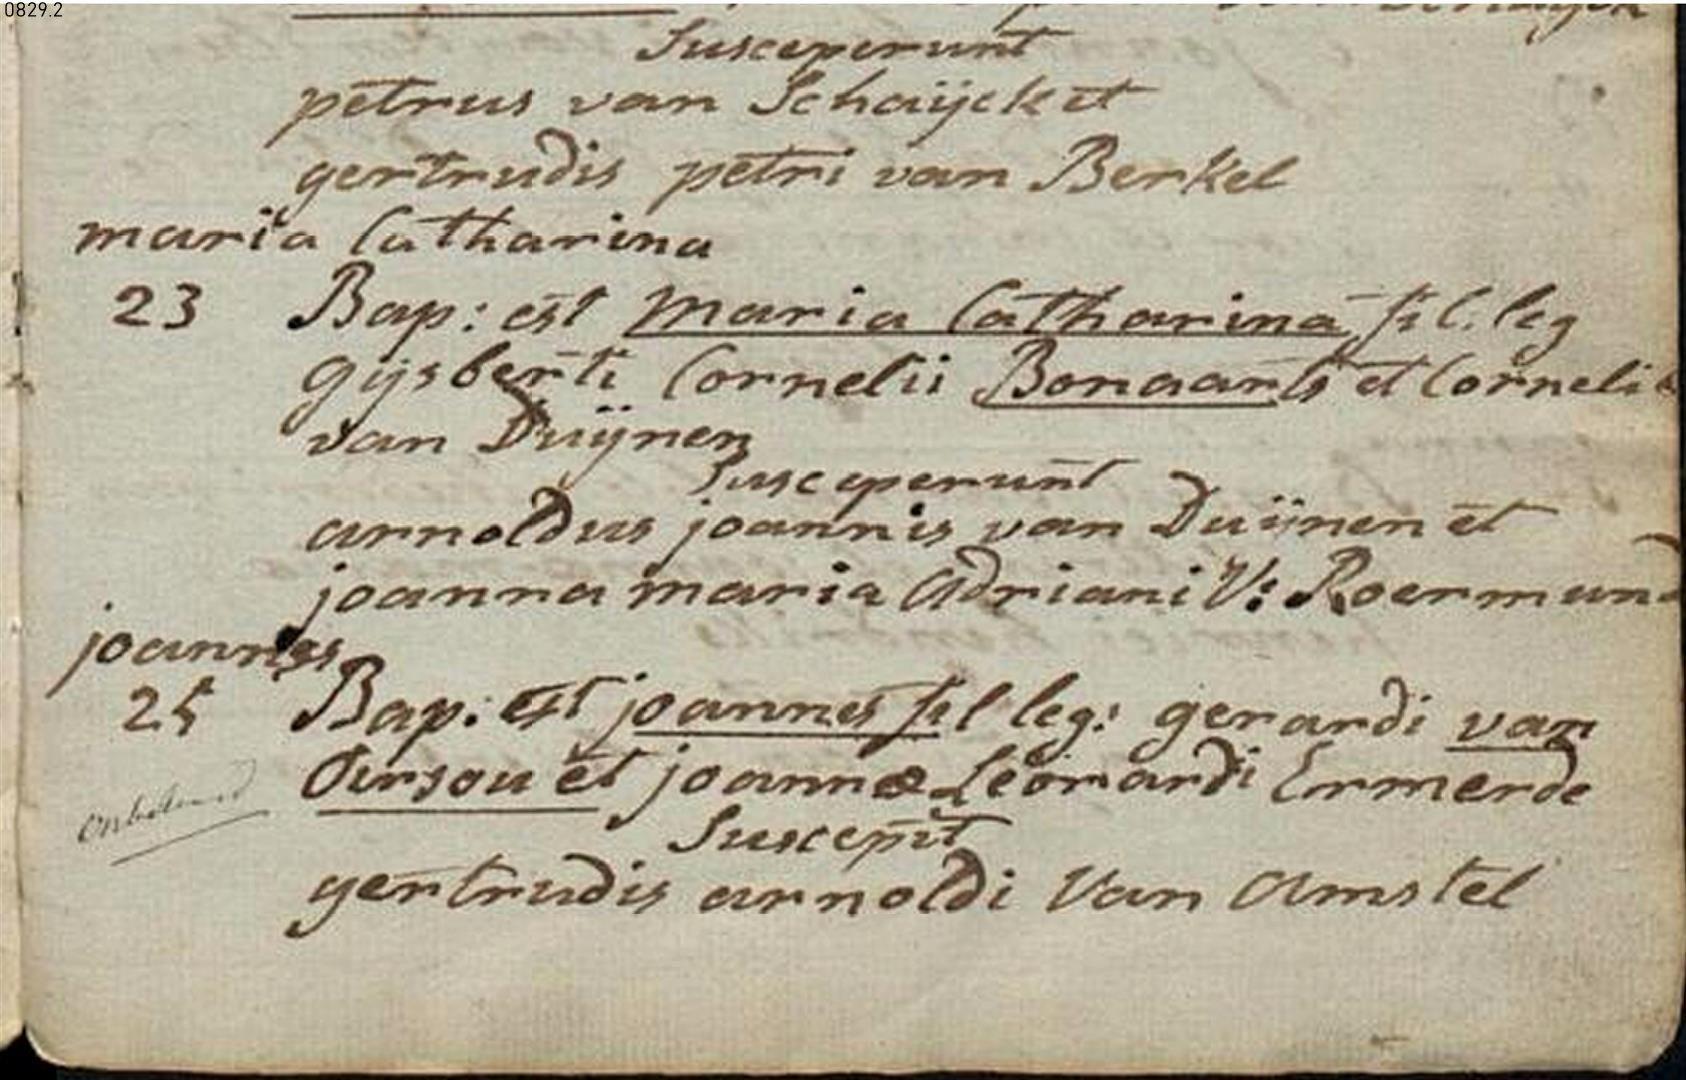 0829.2
Susceperunt
petrus van Schaijck et
gertrudis petri van Berkel
maria Catharina
23 Bap: est Maria Catharina fil. leg
Gijsberti Cornelii Bonaarts et Corneliæ
van Duijnen
Susceperunt
arnoldus joannis van Duijnen et
joanna maria Adriani V: Roermund
joannes
25 Bap: est joannes fil leg: gerardi van
Oursou et joannæ Leonardi Ermerde
Suscepit
gertrudis arnoldi Van Amstel